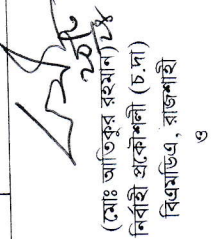 (মোঃ আতিকুর রহমান)
নির্বাহী প্রকৌশলী (চ.দা)
বিএমডিএ, রাজশাহী
ও